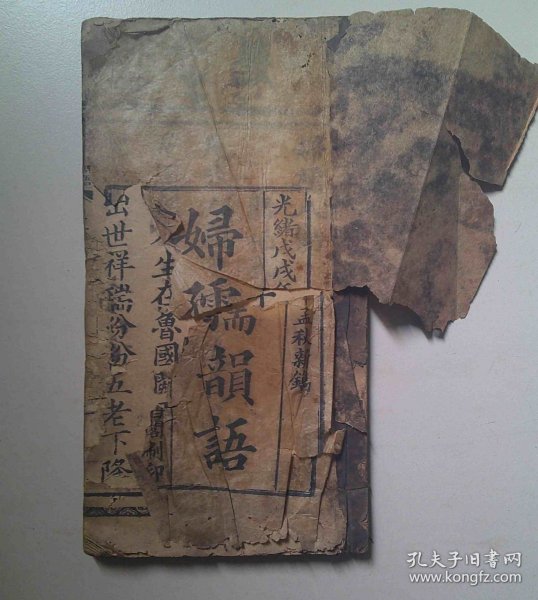 光緒戊戌年
孟秋新鐫
婦孺韻語
生在魯國
刻印
出世祥瑞
五老下降
孔夫子旧书网
www.kongfz.com